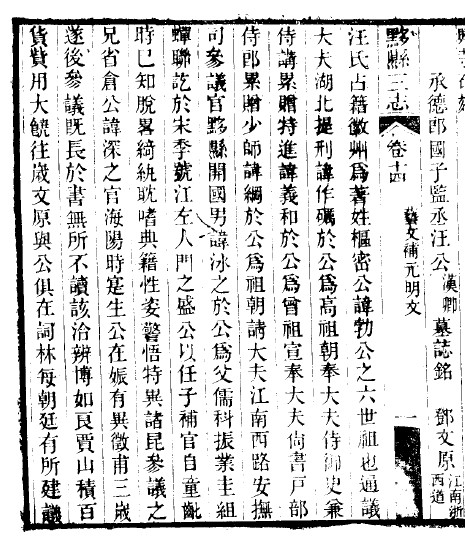 承德郎國子監丞汪公漢卿墓誌銘 鄧文原江南浙西道
黟縣三志 卷十四 藝文補元明文 一
汪氏占籍徽州爲著姓樞密公諱勃公之六世祖也通議
大夫湖北提刑諱作礪於公爲高祖朝奉大夫侍御史兼
侍講累贈特進諱義和於公爲曾祖宣奉大夫尙書戶部
侍郎累贈少師諱綱於公爲祖朝請大夫江南西路安撫
司參議官黟縣開國男諱泳之於公爲父儒科振業圭組
蟬聯訖於宋季號江左人門之盛公以任子補官自童齔
時已知脫畧綺紈耽嗜典籍性姿警悟特異諸昆參議之
兄省倉公諱深之官海陽時寔生公在娠有異徵甫三歲
遂後參議旣長於書無所不讀該洽辨博如良賈山積百
貨費用大饒往歲文原與公俱在詞林每朝廷有所建議